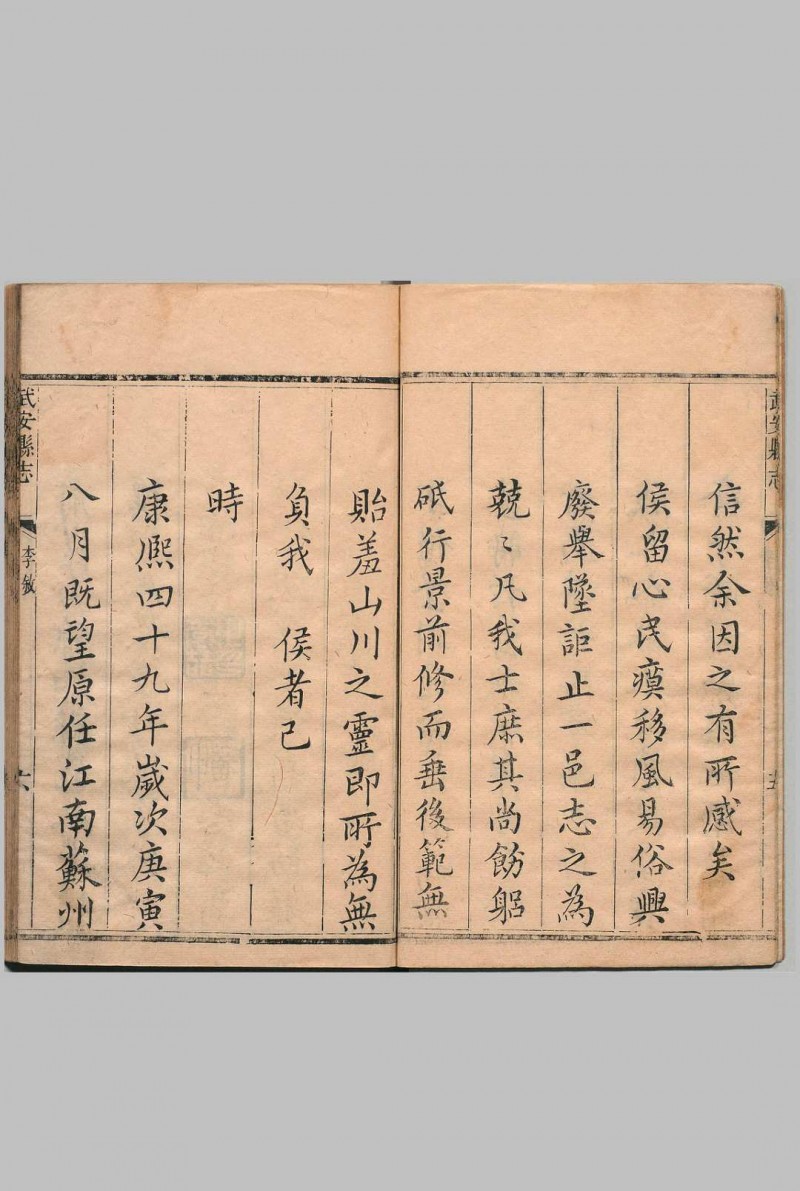 武安縣志
信然余因之有所感矣
侯留心民瘼移風易俗興
廢舉墜詎止一邑志之為
兢〻凡我士庶其尚飭躬
砥行景前修而垂後範無
貽羞山川之靈即所為無
負我　侯者已
時
康熙四十九年歲次庚寅
八月既望原任江南蘇州
武安縣志
李敘
六